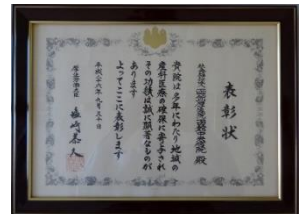 表彰状
殿
貴院は多年にわたり地域の
産科医療の確保に寄与され
その功績は誠に顕著なものが
あります
よってここに表彰します
平成二十八年九月三十日
厚生労働大臣
塩崎恭久